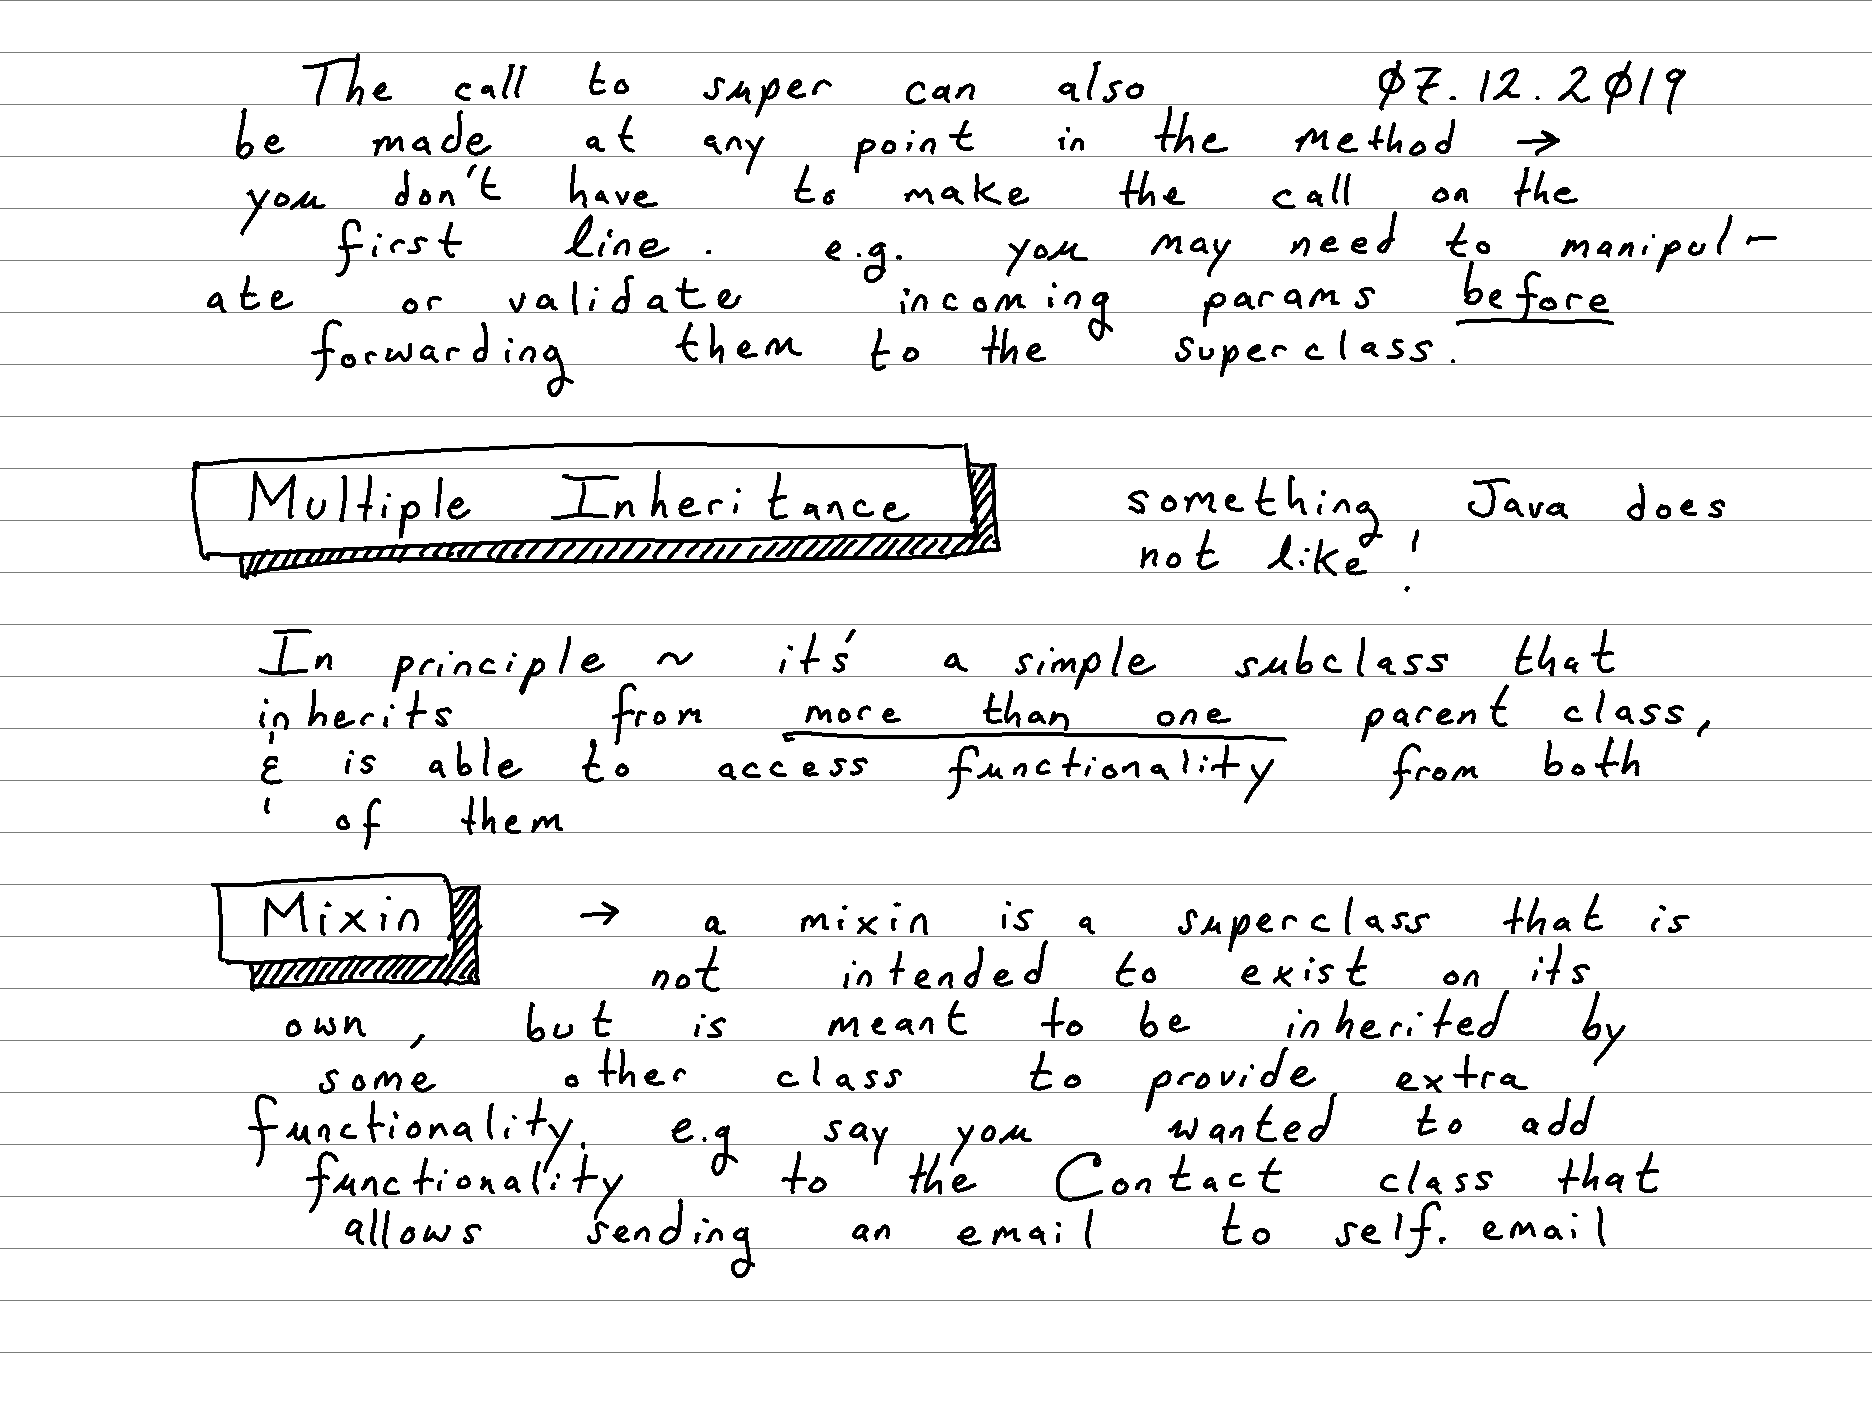 The call to super can also 07.12.2019
be made at any point in the method →
you don't have to make the call on the
first line. e.g. you may need to manipul-
ate or validate incoming params before
forwarding them to the superclass.
Multiple Inheritance something Java does
not like!
In principle ~ it's a simple subclass that
inherits from more than one parent class,
& is able to access functionality from both
of them
Mixin → a mixin is a superclass that is
not intended to exist on its
own, but is meant to be inherited by
some other class to provide extra
functionality. e.g say you wanted to add
functionality to the Contact class that
allows sending an email to self.email